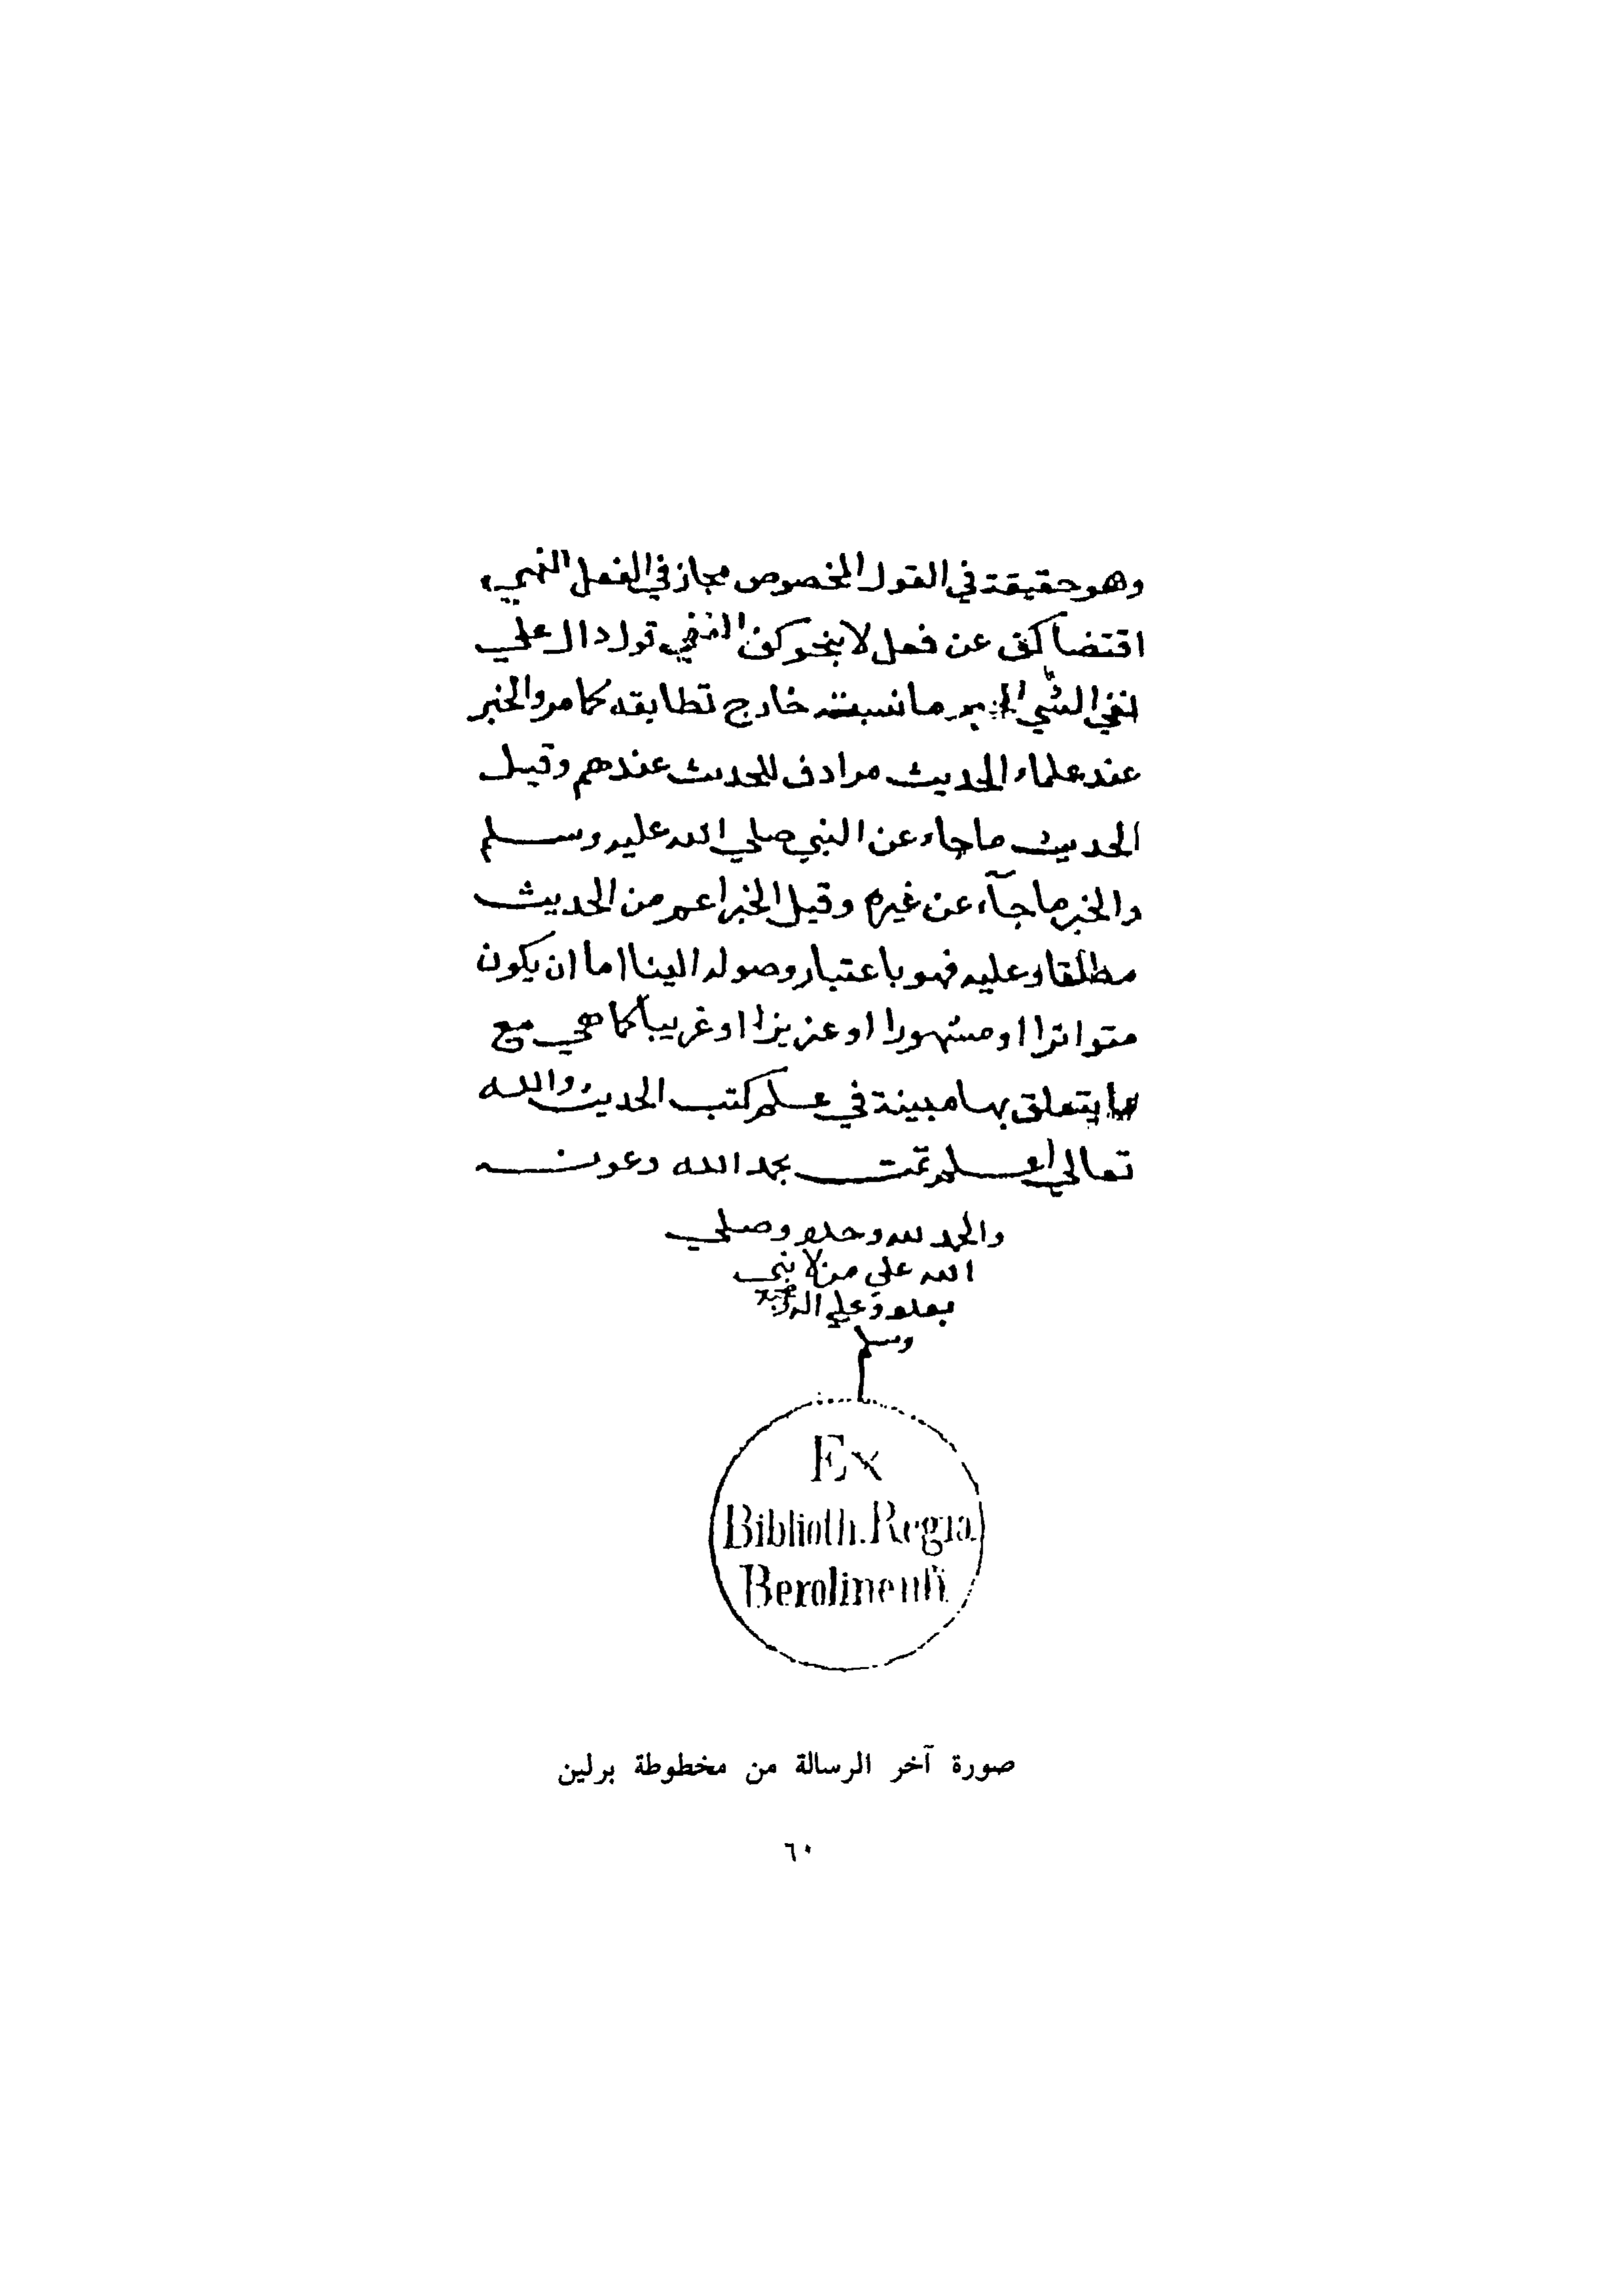 وهو حقيقة في القول المخصوص مجاز في الفعل النهي
اقتضا كف عن فعل لا بنحو كف النفي قول دال علي
نفي الشي الخبر ما نسبته خارج تطابقه كما مر والخبر
عند علماء الحديث مرادف للحديث عندهم وقيل
الحديث ما جاء عن النبي صلي الله عليه وسلم
والخبر ما جآء عن غيره وقيل الخبر اعم من الحديث
مطلقا وعليه فهو باعتبار وصوله الينا اما ان يكون
متواترا او مشهورا او عزيزا او غريبا كما هي مع
ما يتعلق بها مبينة في علم كتب الحديث والله
تعالي اعلم تمت بحمد الله وعونه
والحمد لله وحده وصلي
الله علي من لا نبي
بعده وعلي اله وصحبه
وسلم
Ex
Biblioth. Regia
Berolinensi.
صورة آخر الرسالة من مخطوطة برلين
٦٠